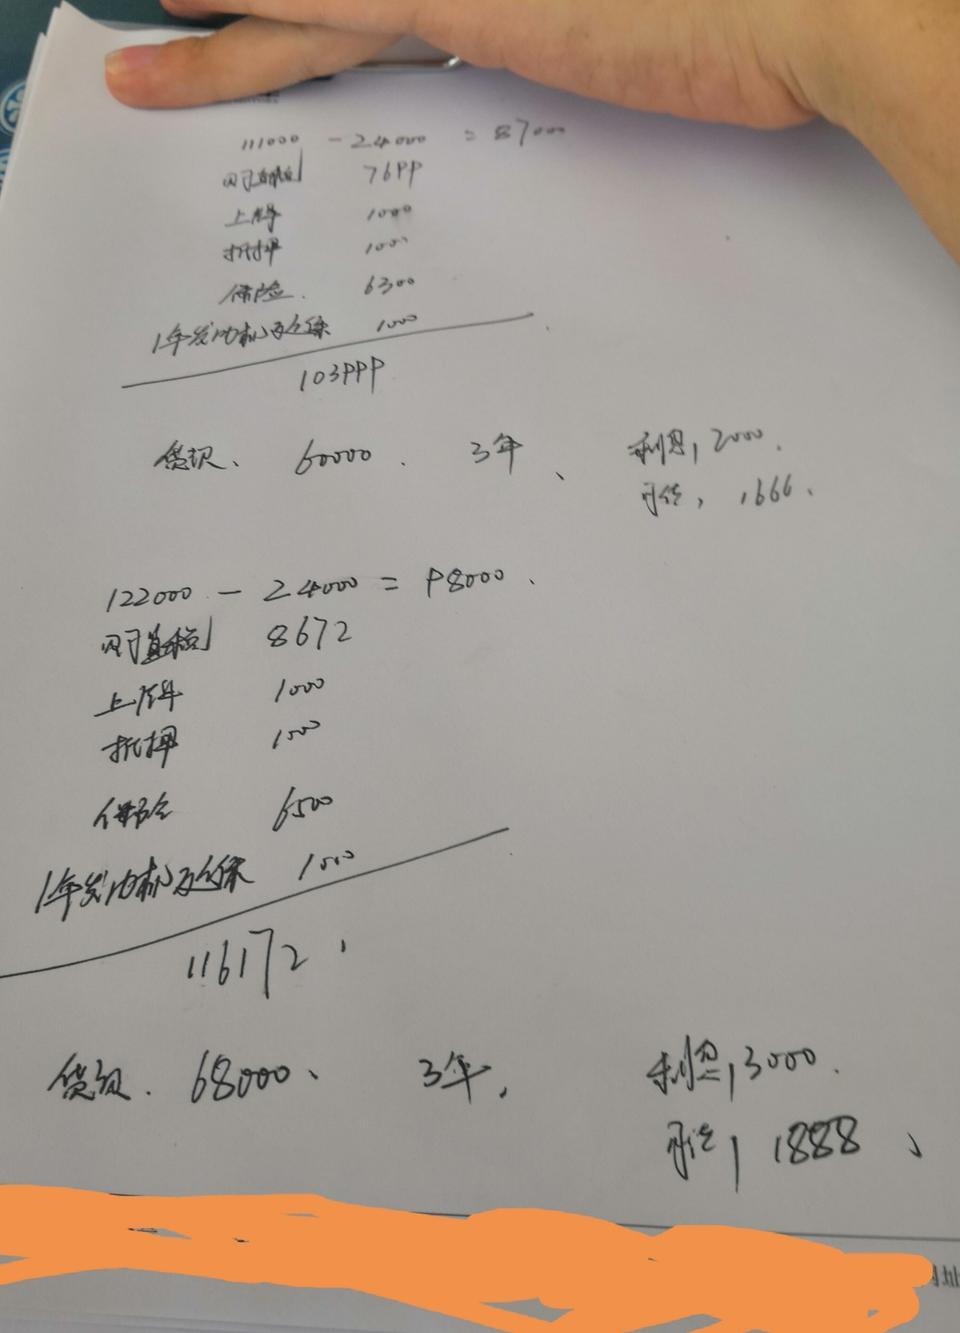 111000 - 24000 = 87000
购置税 7699
上牌 1000
抵押 1000
保险. 6300
1年发动机及全保 1000
103999
贷款、 60000. 3年、 利息, 2000.
月供, 1666.
122000 - 24000 = 98000.
购置税 8672
上牌 1000
抵押 1000
保险 6500
1年发动机及全保 1000
116172.
贷款. 68000、 3年, 利息, 3000.
月供, 1888、
网址